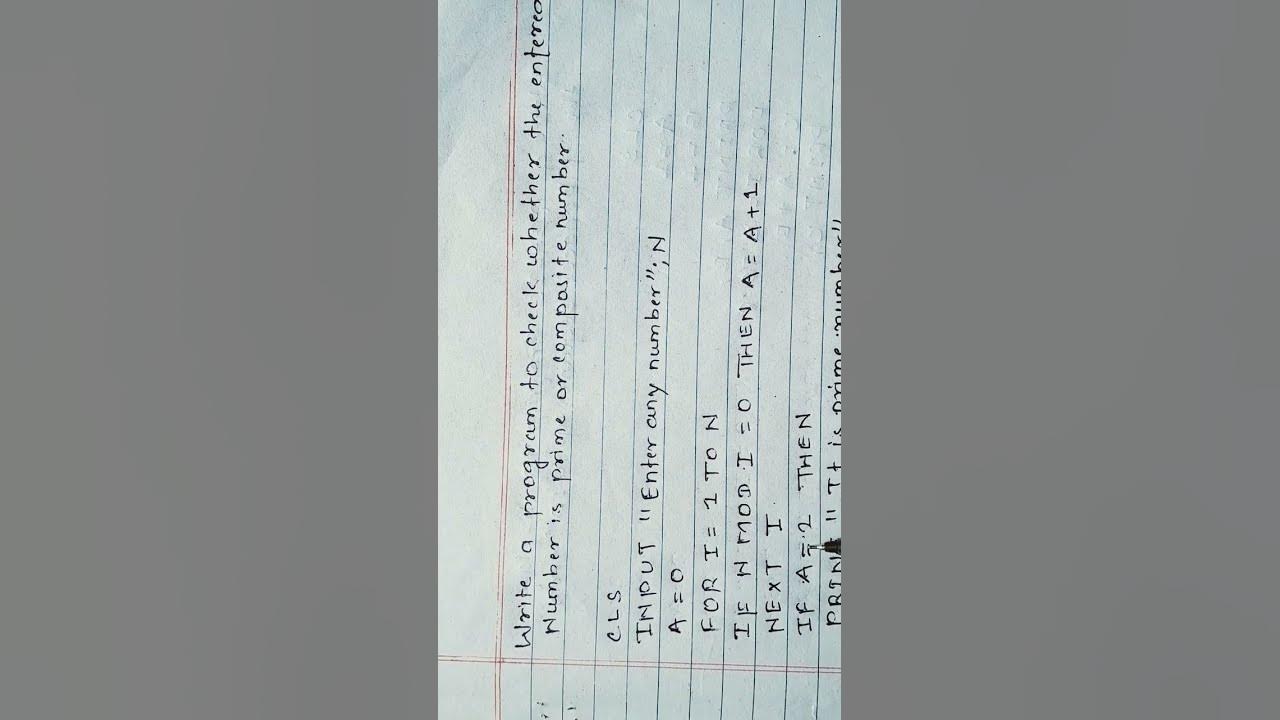 Write a program to check whether the entered
Number is prime or composite number.
CLS
INPUT "Enter any number"; N
A = 0
FOR I = 1 TO N
IF N MOD I = 0 THEN A = A + 1
NEXT I
IF A = 2 THEN
PRINT "It is prime number"